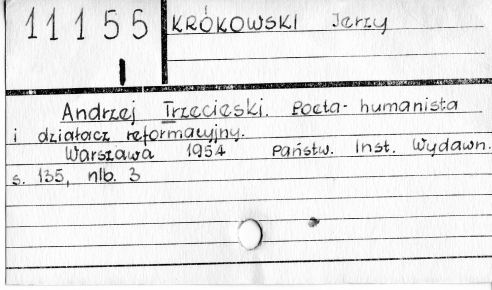 11155
I
KRÓKOWSKI Jerzy
Andrzej Trzecieski. Poeta-humanista
i działacz reformacyjny.
Warszawa 1954 Państw. Inst. Wydawn.
s. 135, nlb. 3